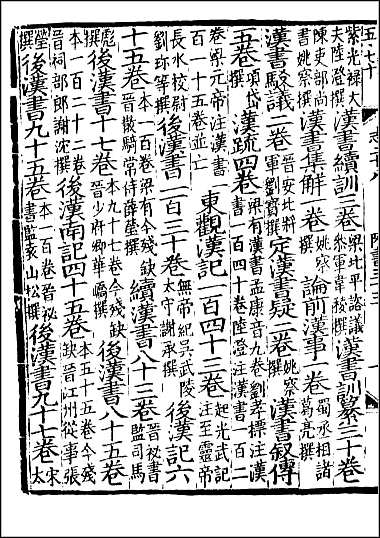 紫光祿大夫陸澄撰漢書續訓三卷梁北平諮議參軍韋稜撰漢書訓纂三十卷
陳吏部尚書姚察撰漢書集解一卷姚察撰論前漢事一卷蜀丞相諸葛亮撰
漢書駮議二卷晉安北將軍劉寶撰定漢書疑二卷姚察撰漢書敘傳
五卷項岱撰漢疏四卷梁有漢書孟康音九卷劉孝標注漢書一百四十卷陸澄注漢書一百二
卷梁元帝注漢書一百一十五卷並亡東觀漢記一百四十三卷起光武記注至靈帝
長水校尉劉珍等撰後漢書一百三十卷無帝紀吳武陵太守謝承撰後漢記六
十五卷本一百卷梁有今殘缺晉散騎常侍薛瑩撰續漢書八十三卷晉祕書監司馬
彪撰後漢書十七卷本九十七卷今殘缺晉少府卿華嶠撰後漢書八十五卷
本一百二十二卷晉祠部郎謝沈撰後漢南記四十五卷本五十五卷今殘缺晉江州從事張
瑩撰後漢書九十五卷本一百卷晉祕書監袁山松撰後漢書九十七卷宋太